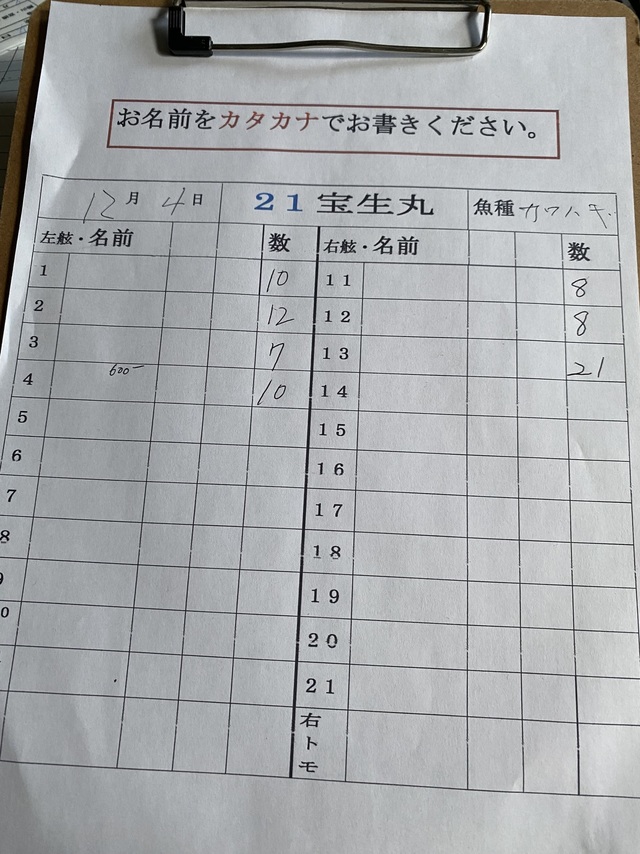 お名前をカタカナでお書きください。
12月 4日 21宝生丸 魚種 カワハギ
左舷・名前 数 右舷・名前 数
1 10 11 8
2 12 12 8
3 7 13 21
600-
4 10 14
5 15
6 16
7 17
8 18
9 19
0 20
21
右トモ